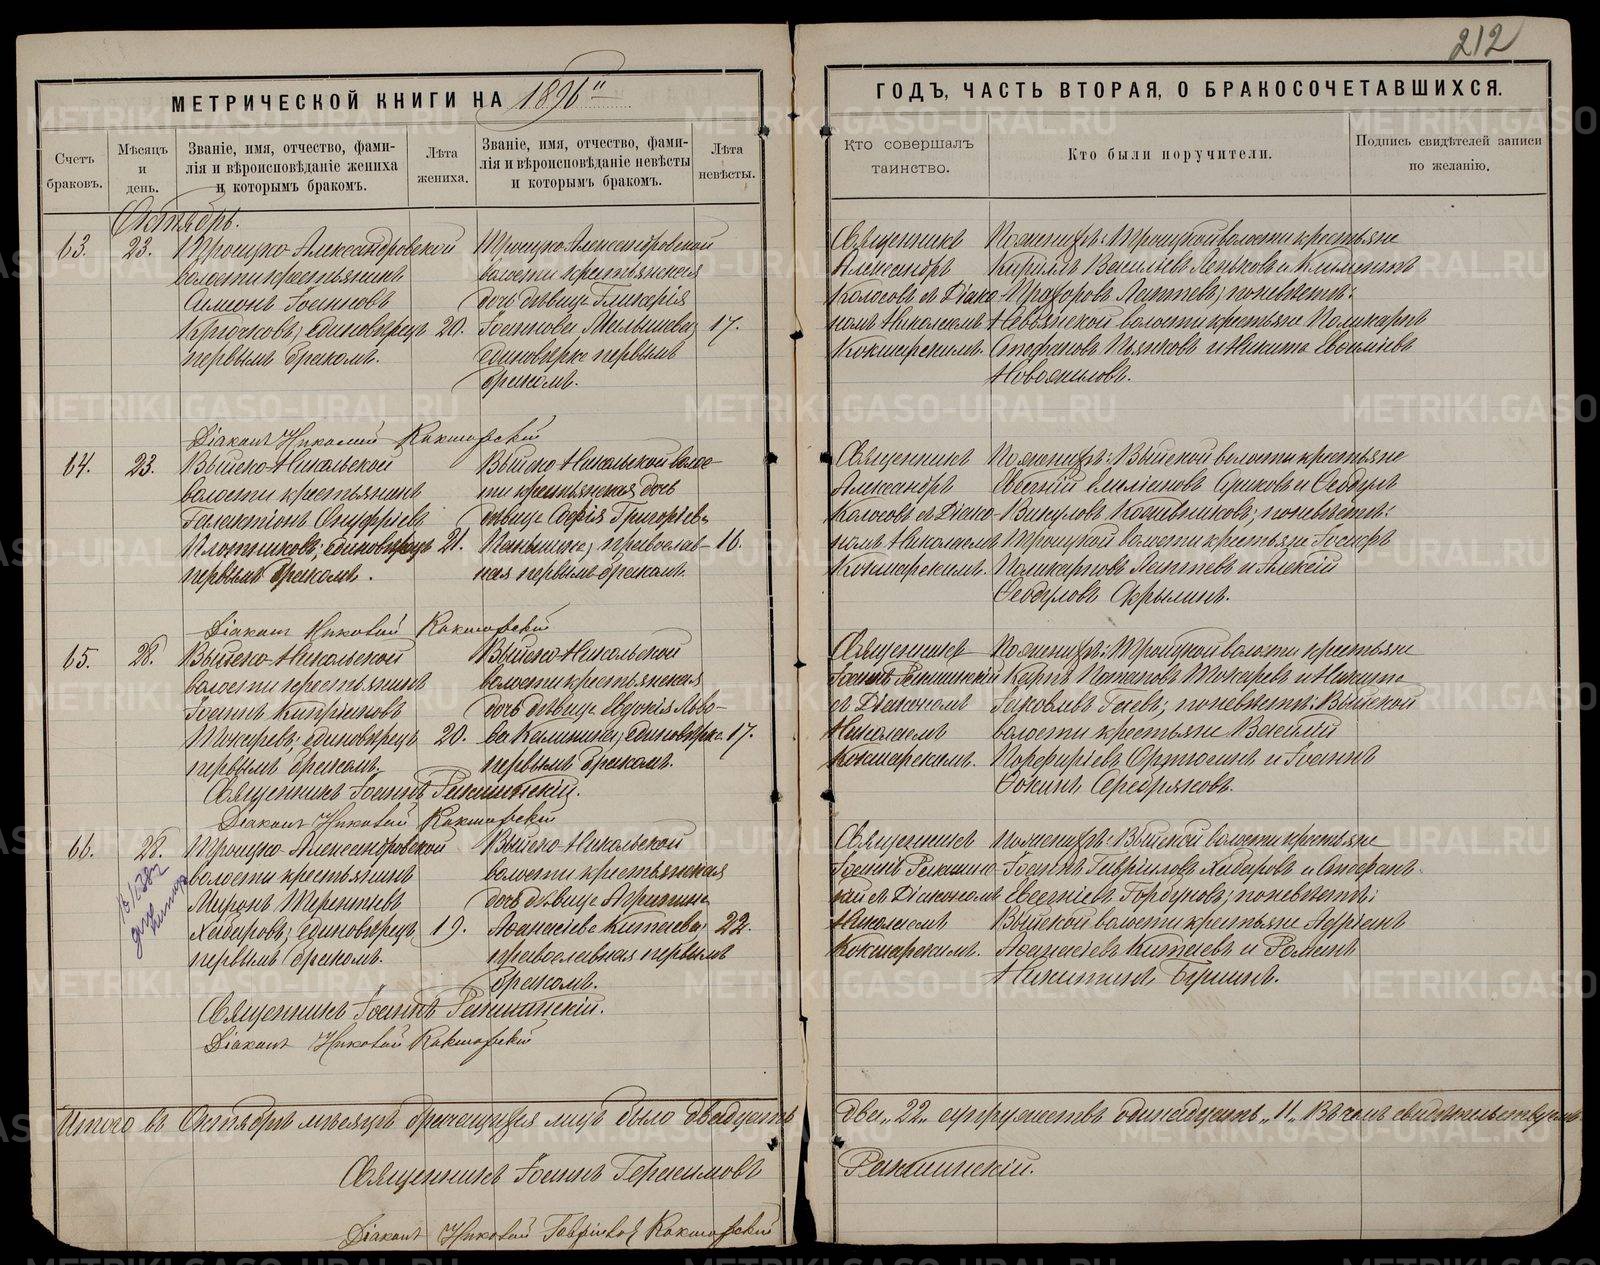 212
МЕТРИЧЕСКОЙ КНИГИ НА 1896й
ГОДЪ, ЧАСТЬ ВТОРАЯ, О БРАКОСОЧЕТАВШИХСЯ.
Счетъ браковъ.
Мѣсяцъ и день.
Званіе, имя, отчество, фами-
лія и вѣроисповѣданіе жениха
и которымъ бракомъ.
Лѣта жениха.
Званіе, имя, отчество, фами-
лія и вѣроисповѣданіе невѣсты
и которымъ бракомъ.
Лѣта невѣсты.
Кто совершалъ таинство.
Кто были поручители.
Подпись свидѣтелей записи по желанію.
Октябрь.
63. 23.
Троицко-Александровской
волости крестьянинъ
Симеонъ Іоанновъ
единовѣрецъ 20.
первымъ бракомъ.
Троицко-Александровской
волости крестьянская
дочь дѣвица Гликерія
Іоаннова Малышева, 17.
единовѣрка первымъ
бракомъ.
Священникъ
Александръ
Колосовъ съ Діако-
номъ Николаемъ
Кокшарскимъ.
По женихѣ: Троицкой волости крестьяне
Кирилъ Васильевъ Пеньковъ и Климентъ
Прохоровъ Лаптевъ; по невѣстѣ:
Невьянской волости крестьяне Поликарпъ
Стефановъ Пьянковъ и Никита Евоиміевъ
Новожиловъ.
Діаконъ Николай Кокшарскій
64. 23.
Выйско-Никольской
волости крестьянинъ
Галактіонъ Онуфріевъ
Плотниковъ, единовѣрецъ 21.
первымъ бракомъ.
Выйско-Никольской волос-
ти крестьянская дочь
дѣвица Софія Григорьев
православ- 16.
ная первымъ бракомъ.
Священникъ
Александръ
Колосовъ съ Діако-
номъ Николаемъ
Кокшарскимъ.
По женихѣ: Выйской волости крестьяне
Евгеній Емиліановъ и Ѳеодулъ
Викуловъ; по невѣстѣ:
Троицкой волости крестьяне Іосифъ
Поликарповъ Лаптевъ и Алексій
Ѳеодуловъ
Діаконъ Николай Кокшарскій
65. 28.
Выйско-Никольской
волости крестьянинъ
Іоаннъ Кипріановъ
Токаревъ, единовѣрецъ 20.
первымъ бракомъ.
Выйско-Никольской
волости крестьянская
дочь дѣвица Евдокія Льво-
ва Калинина, единовѣрка 17.
первымъ бракомъ.
Священникъ
Іоаннъ Рекшинскій
съ Діакономъ
Николаемъ
Кокшарскимъ.
По женихѣ: Троицкой волости крестьяне
Карпъ Потаповъ Токаревъ и Никита
Іаковлевъ Гаевъ; по невѣстѣ: Выйской
волости крестьяне Василій
Порфиріевъ и Іоаннъ
Ѳокинъ Серебряковъ.
Священникъ Іоаннъ Рекшинскій.
Діаконъ Николай Кокшарскій
66. 28.
Троицко-Александровской
волости крестьянинъ
Миронъ Терентіевъ
Хабаровъ, единовѣрецъ 19.
первымъ бракомъ.
Выйско-Никольской
волости крестьянская
дочь дѣвица Агрипина
Аѳанасіева Китаева, 22.
православная первымъ
бракомъ.
Священникъ
Іоаннъ Рекшинс-
кій съ Діакономъ
Николаемъ
Кокшарскимъ.
По женихѣ: Выйской волости крестьяне
Іоаннъ Гавриловъ Хабаровъ и Стефанъ
Евгеніевъ Горбуновъ; по невѣстѣ:
Выйской волости крестьяне Адріанъ
Аѳанасіевъ Китаевъ и Романъ
Никитинъ
Священникъ Іоаннъ Рекшинскій.
Діаконъ Николай Кокшарскій
Итого въ Октябрѣ мѣсяцѣ брачущихся лицъ было двадцать
два „22„ супружествъ одинадцать „11„ В чемъ свидѣтельствуемъ
Священникъ Іоаннъ Герасимовъ
Рекшинскій.
Діаконъ Николай Гавріиловъ Кокшарскій
METRIKI.GASO-URAL.RU